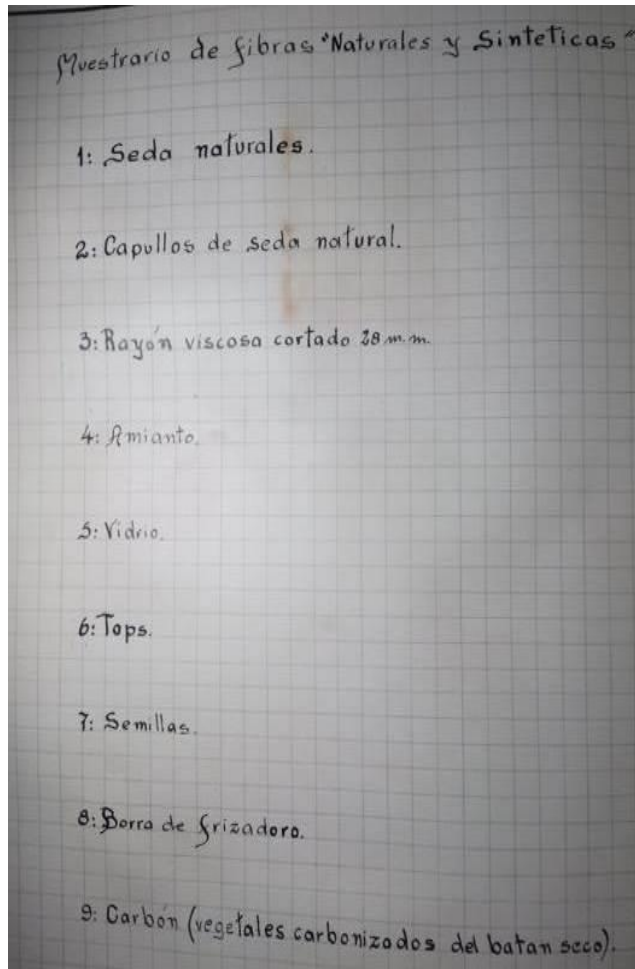 Muestrario de fibras "Naturales y Sinteticas"
1: Seda naturales.
2: Capullos de seda natural.
3: Rayón viscosa cortado 28 m.m.
4: Amianto.
5: Vidrio.
6: Tops.
7: Semillas.
8: Borra de frizadora.
9: Carbón (vegetales carbonizados del batan seco).